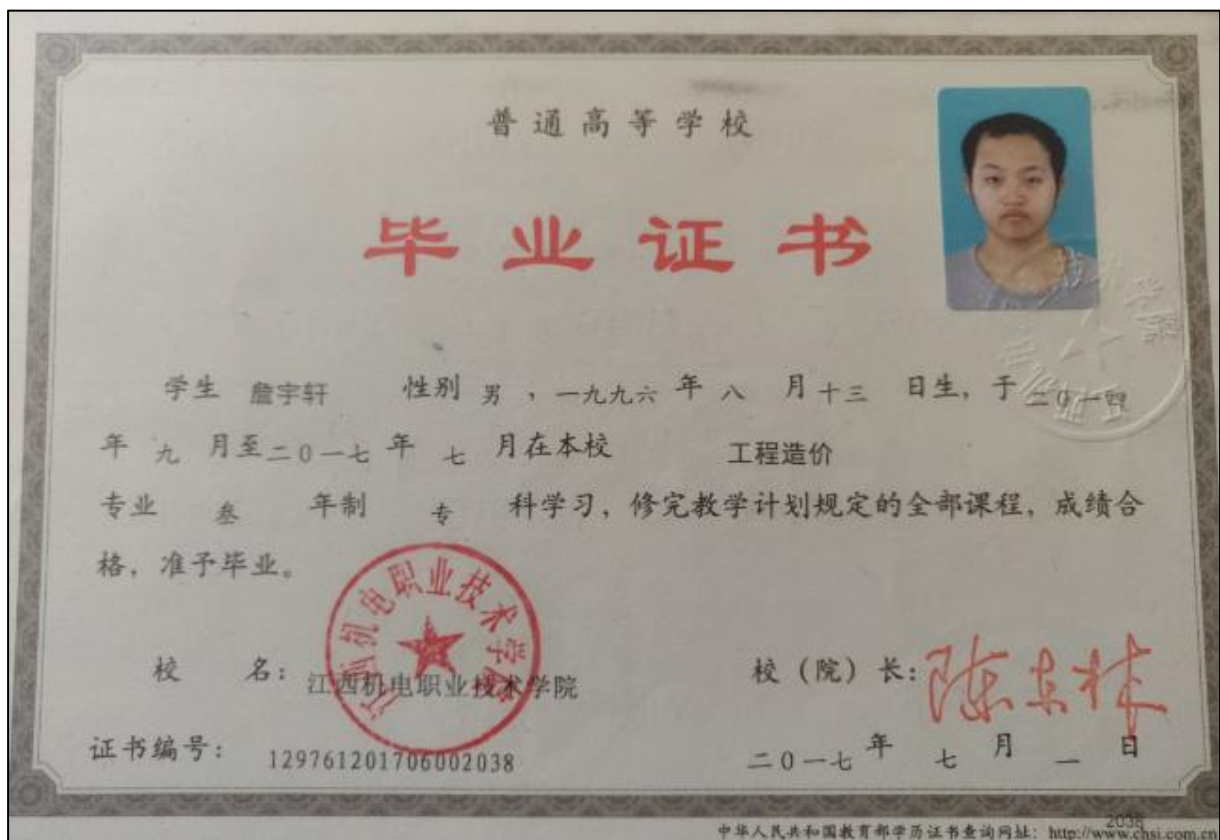 普通高等学校
毕业证书
学生 詹宇轩 性别 男 ，一九九六 年 八 月 十三 日生，于 二0一四
年 九 月至 二0一七 年 七 月在本校 工程造价
专业 叁 年制 专 科学习，修完教学计划规定的全部课程，成绩合
格，准予毕业。
江西机电职业技术学院
校 名： 江西机电职业技术学院 校（院）长： 陈东林
证书编号： 129761201706002038 二0一七 年 七 月 一 日
2038
中华人民共和国教育部学历证书查询网址：http://www.chsi.com.cn